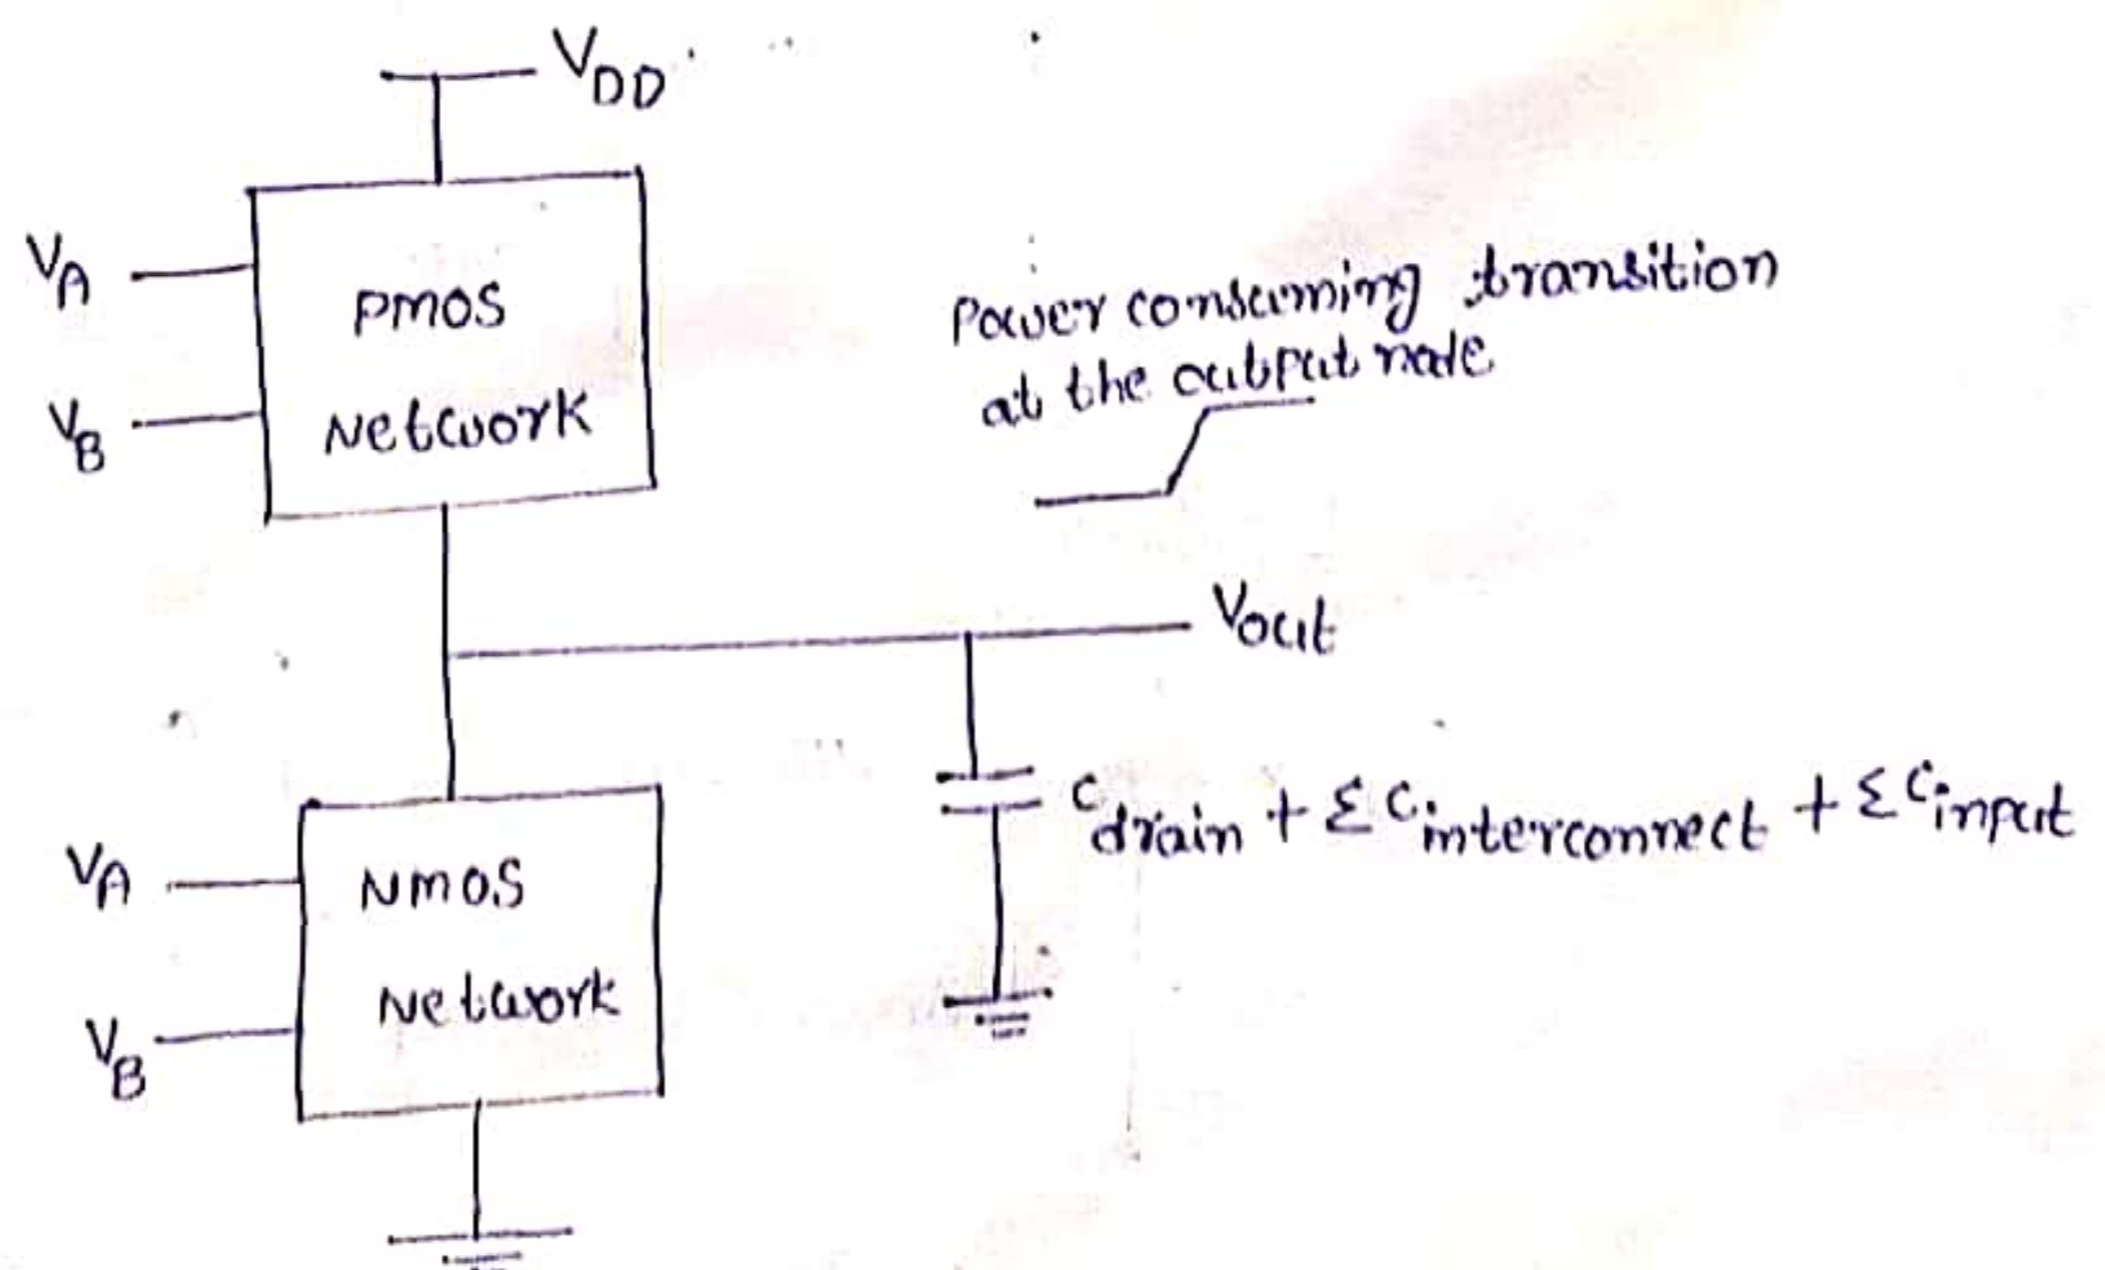 VDD
VA
PMOS
VB
Network
Power consuming transition
at the output node
Vout
Cdrain + Σ Cinterconnect + Σ Cinput
VA
NMOS
Network
VB